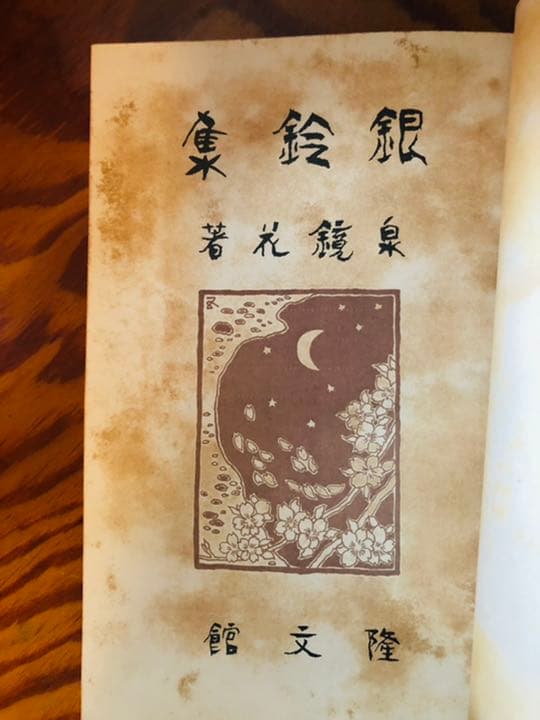 銀鈴集
泉鏡花著
隆文館